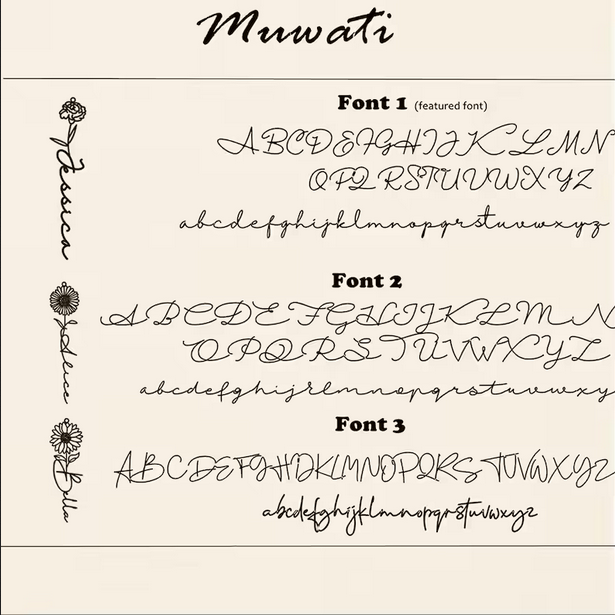 Muwati
Font 1 (featured font)
ABCDEFGHIJKLMN
OPQRSTUVWXYZ
abcdefghijklmnopqrstuvwxyz
Font 2
ABCDEFGHIJKLMN
OPQRSTUVWXYZ
abcdefghijklmnopqrstuvwxy
Font 3
ABCDEFGHIJKLMNOPQRSTUVWXYZ
abcdefghijklmnopqrstuvwxyz
Jessica
Alice
Bella